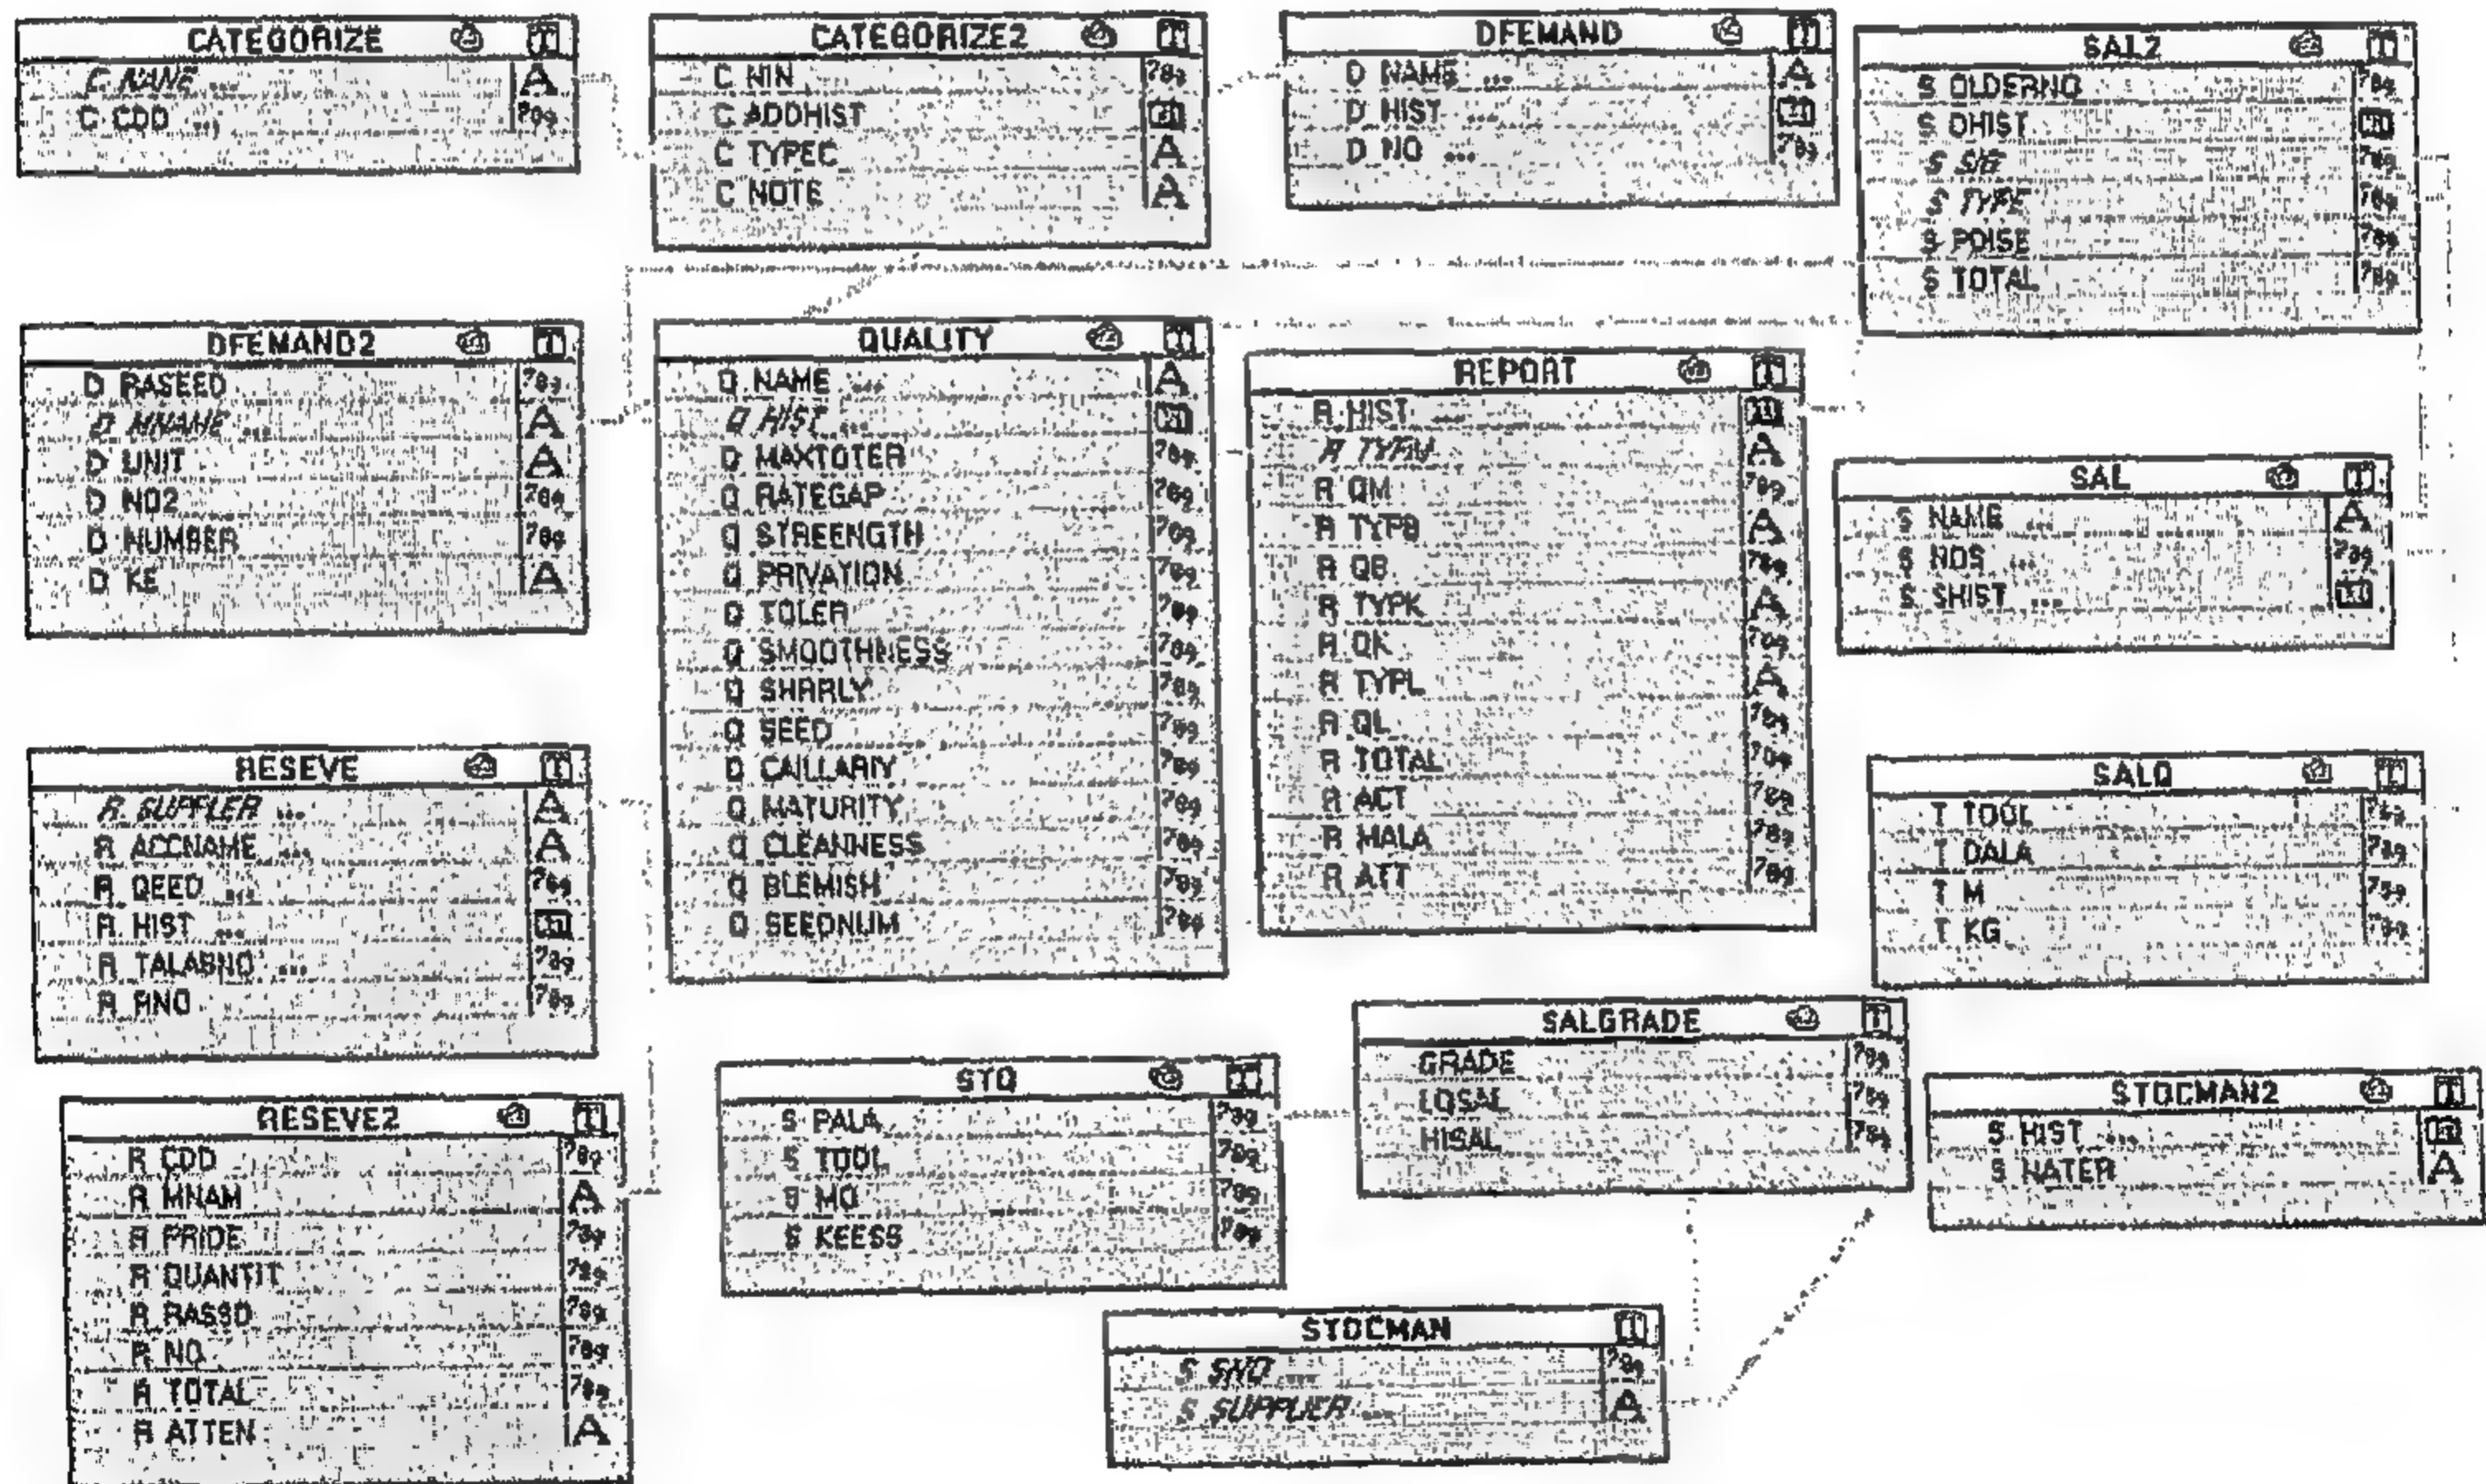 CATEGORIZE
C NANE ...
C CDD ...
CATEGORIZE2
C NIN
C ADDHIST
C TYPEC
C NOTE
DFEMAND
D NAME ...
D HIST ...
D NO ...
SAL2
S OLDERNO
S DHIST
S TYPE
S POISE
S TOTAL
DFEMAND2
D RASEED
D MNAME ...
D UNIT
D NO2
D NUMBER
D KE
QUALITY
Q NAME ...
Q HIST ...
Q MAXTOTER
Q RATEGAP
Q STREENGTH
Q PRIVATION
Q TOLER
Q SMOOTHNESS
Q SHARLY
Q SEED
Q CAILLARIY
Q MATURITY
Q CLEANNESS
Q BLEMISH
Q SEEDNUM
REPORT
R HIST ...
R TYPM
R QM
R TYPB
R QB
R TYPK
R QK
R TYPL
R QL
R TOTAL
R ACT
R MALA
R ATT
SAL
S NAME ...
S NOS ...
S SHIST ...
RESEVE
R SUPPLER ...
R ACCNAME ...
R QEED ...
R HIST ...
R TALABNO ...
R RNO
SALQ
T TOOL
T DALA
T M
T KG
RESEVE2
R CDD
R MNAM
R PRIDE
R QUANTIT
R RASSD
R NO
R TOTAL
R ATTEN
STQ
S PALA
S TOOL
S MO
S KEESS
SALGRADE
GRADE
LOSAL
HISAL
STOCMAN2
S HIST ...
S NATER
STOCMAN
S SNO ...
S SUPPLIER ...